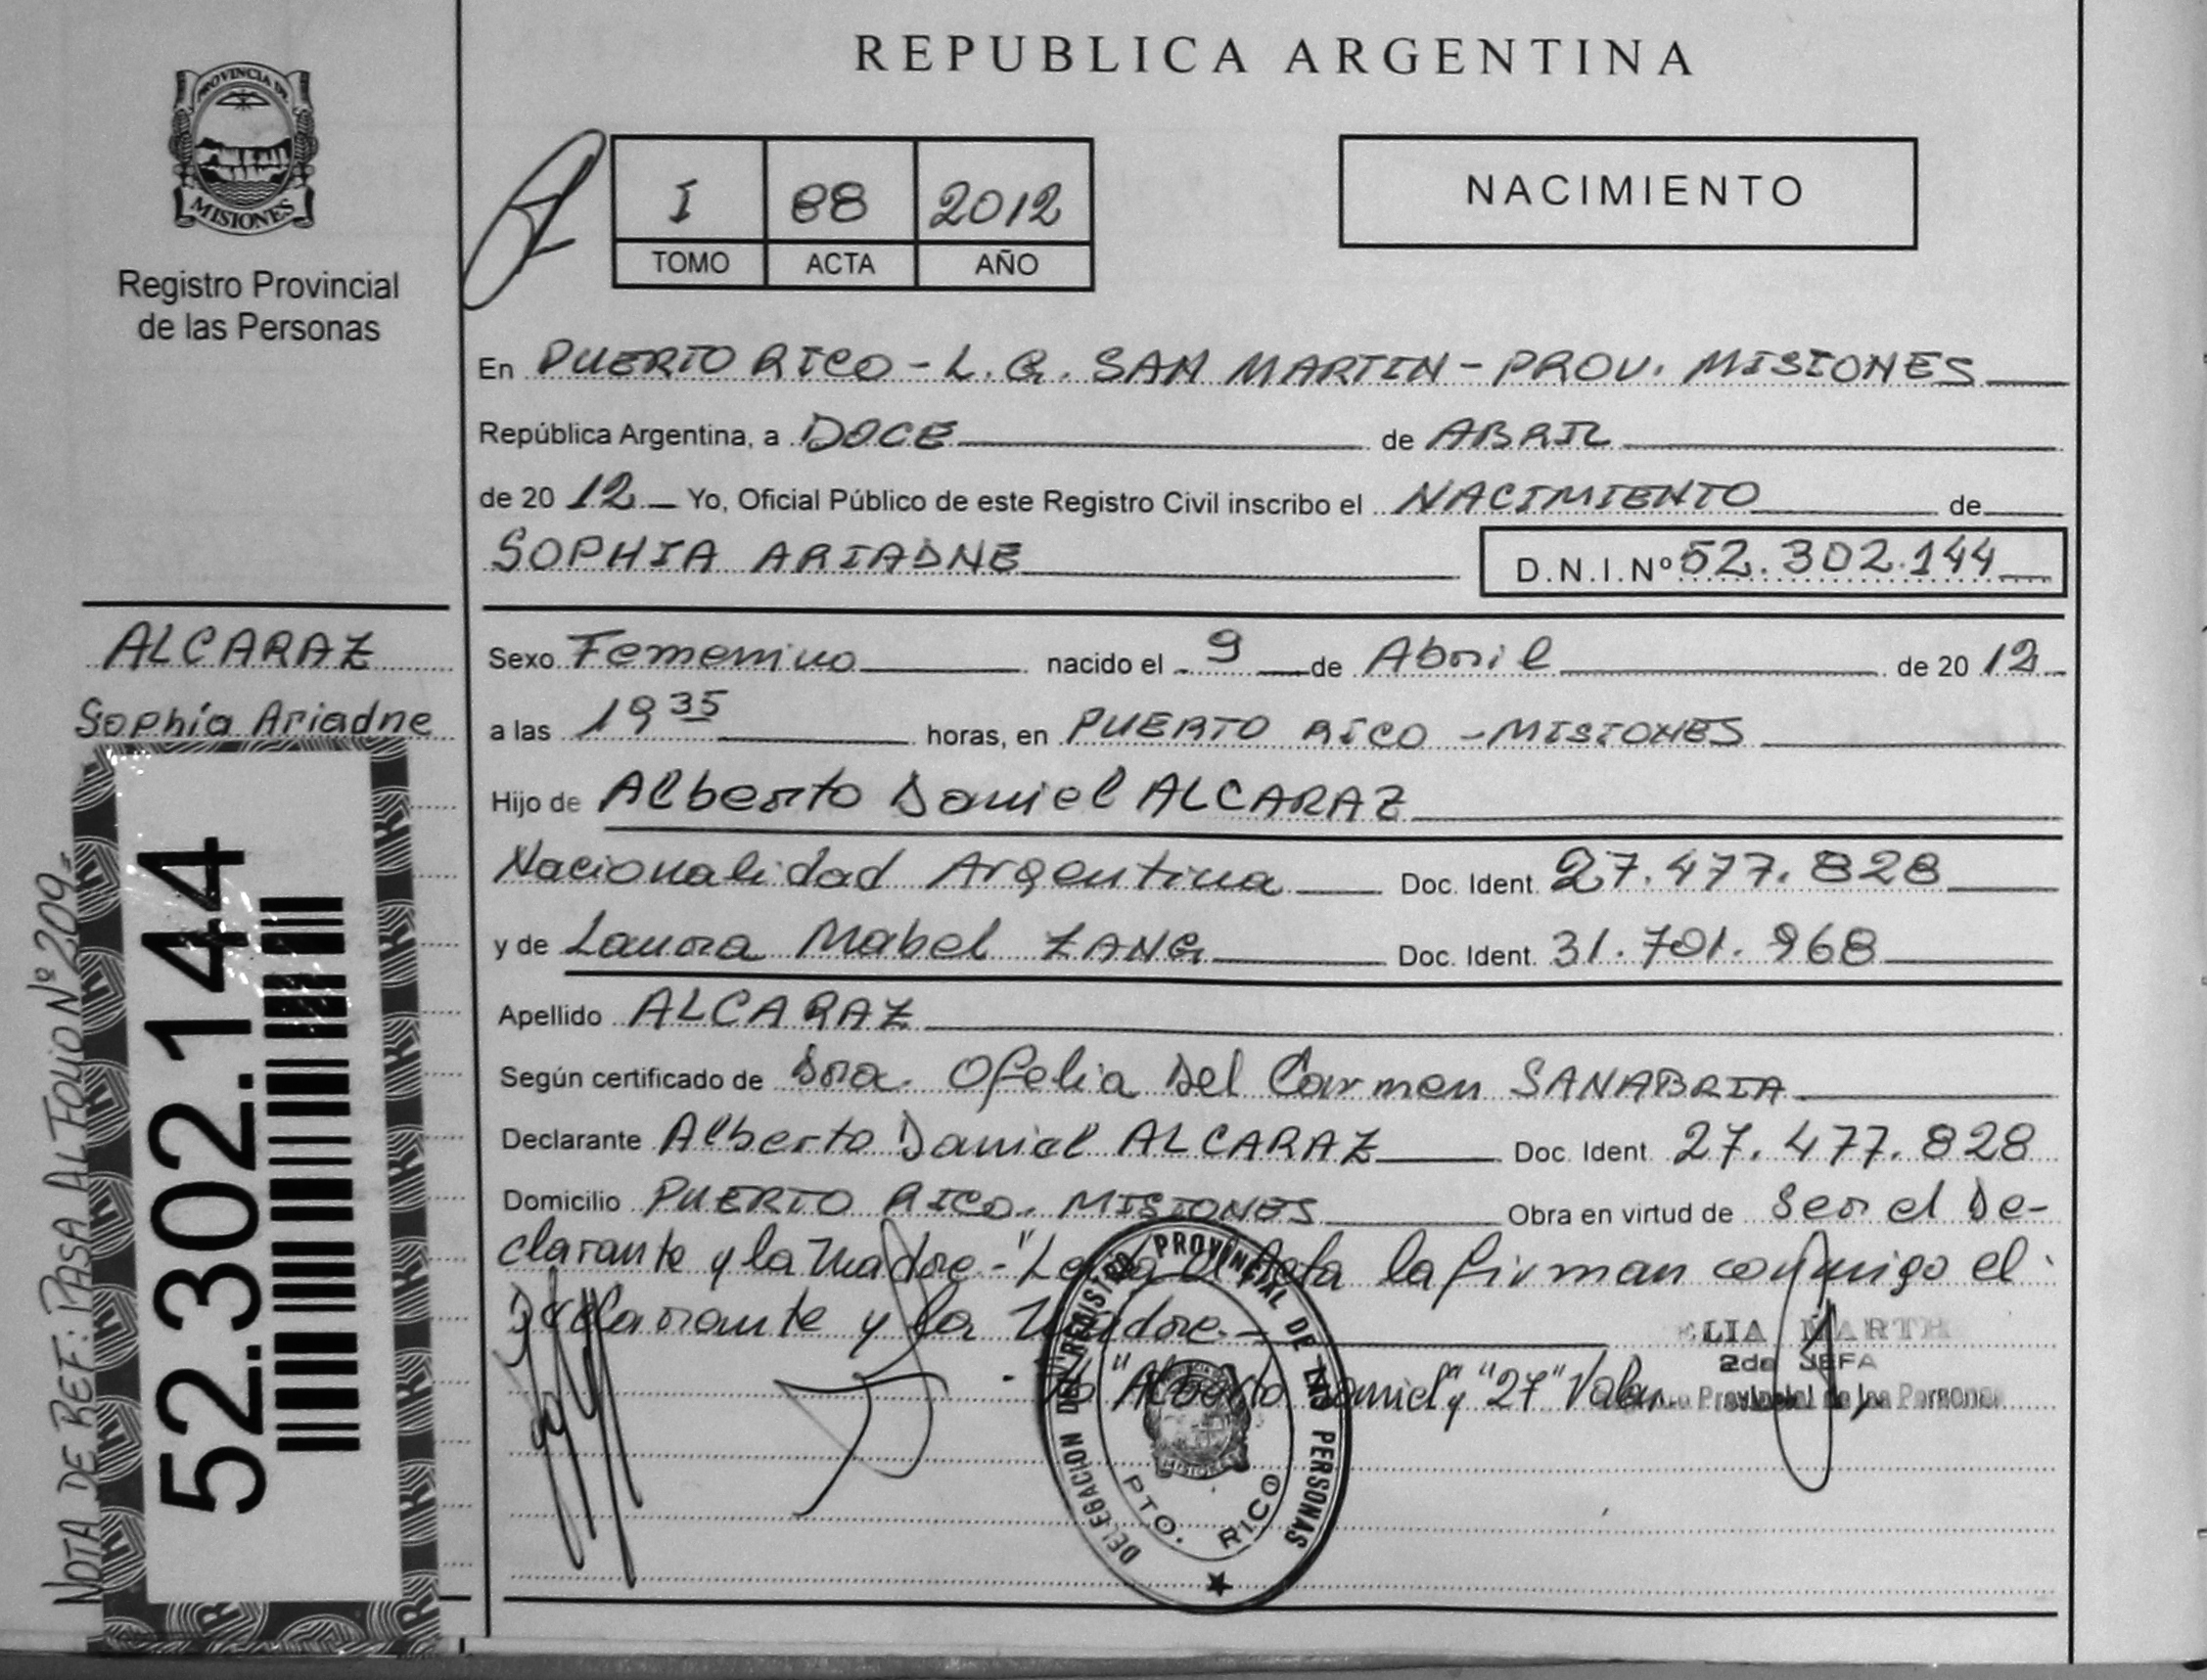 REPUBLICA ARGENTINA
PROVINCIA DE
MISIONES
Registro Provincial
de las Personas
I 88 2012
TOMO ACTA AÑO
NACIMIENTO
En PUERTO RICO - L. G. SAN MARTIN - PROV. MISIONES
República Argentina, a DOCE de ABRIL
de 2012 Yo, Oficial Público de este Registro Civil inscribo el NACIMIENTO de
SOPHIA ARIADNE D.N.I.Nº 52.302.144
ALCARAZ
Sophia Ariadne
52.302.144
NOTA DE REF: PASA AL FOLIO Nº 209.=
Sexo Femenino nacido el 9 de Abril de 2012
a las 19 35 horas, en PUERTO RICO - MISIONES
Hijo de Alberto Daniel ALCARAZ
Nacionalidad Argentina Doc. Ident. 27.477.828
y de Laura Mabel ZANG Doc. Ident. 31.701.968
Apellido ALCARAZ
Según certificado de Dra. Ofelia Del Carmen SANABRIA
Declarante Alberto Daniel ALCARAZ Doc. Ident. 27.477.828
Domicilio PUERTO RICO. MISIONES Obra en virtud de Ser el De-
clarante y la Madre - "Leída el Acta la firman conmigo el
Declarante y la Madre.-
"Alberto Daniel" y "27" Vale
ELIA MARTH
2da JEFA
Provincial de las Personas
DELEGACION DEL REGISTRO PROVINCIAL DE LAS PERSONAS
MISIONES
PTO. RICO